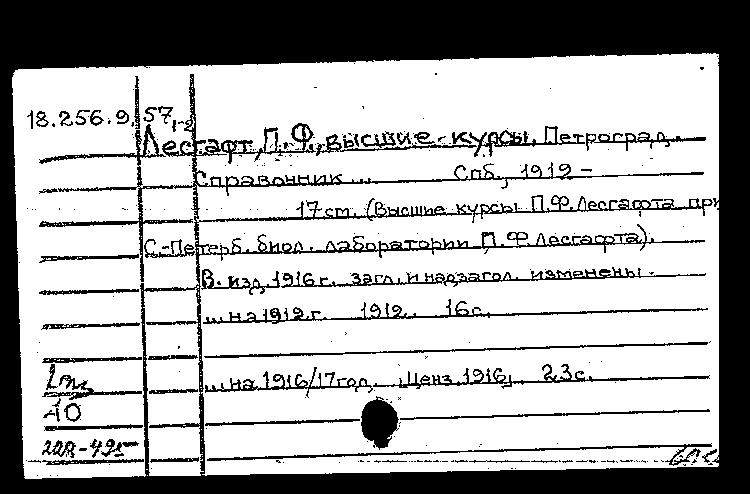 18.256.9.57,1-2
Лесгафт, П.Ф., высшие курсы, Петроград.
Справочник ... Спб., 1912 –
17 cm. (Высшие курсы П.Ф. Лесгафта при
С.-Петерб. биол. лаборатории П.Ф. Лесгафта).
В изд. 1916 г. загл. и надзагол. изменены.
... на 1912 г. 1912. 16 с.
... на 1916/17 год. [Ценз. 1916]. 23 с.
40